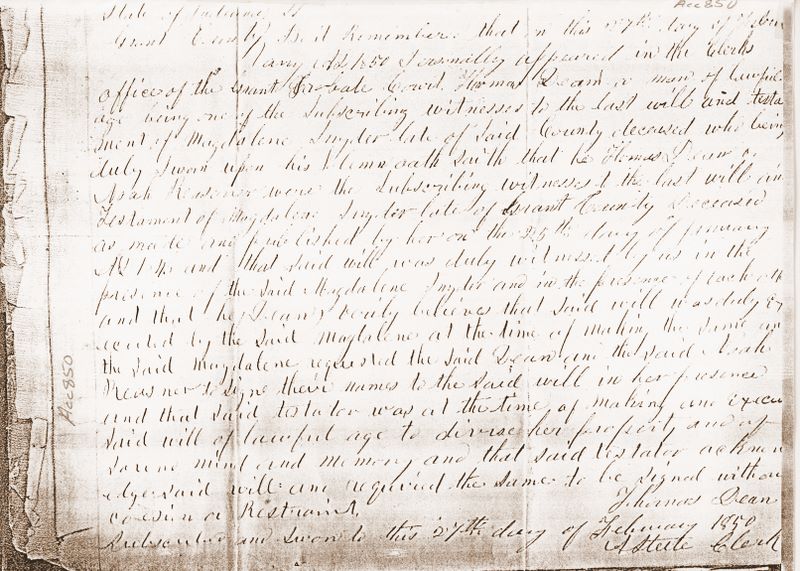 Acc 850
State of Indiana SS
Grant County Be it Remember that on this 27th day of Febru
ary AD 1850 Personally appeared in the Clerks
office of the Grant Probate Court Thomas Dean a man of lawful
age being one of the Subscribing witnesses to the last will and testa
ment of Magdalene Snyder late of Said County deceased who being
duly Sworn upon his Solemn oath Saith that he Thomas Dean &
Noah Reasner were the Subscribing witnesses to the last will an
Testament of Magdalene Snyder late of Grant County Deceased
as made and published by her on the 25th day of January
AD and that said will was duly witnessed by us in the
presence of the said Magdalene Snyder and in the presence of each oth
and that he Dean verily believes that said will was duly Ex
ecuted by the Said Magdalene at the time of making the same an
the Said Magdalene requested the said Dean and the said Noah
Reasner to sign their names to the Said will in her presence
and that said testator was at the time of making and execu
Said will of lawful age to devise her property and of
Sound mind and Memory and that said testator acknow
edge said will and required the same to be signed withou
coersion or Restraint.
Thomas Dean
Subscribed and Sworn to this 27th day of February 1850
A Steele Clerk
Acc 850